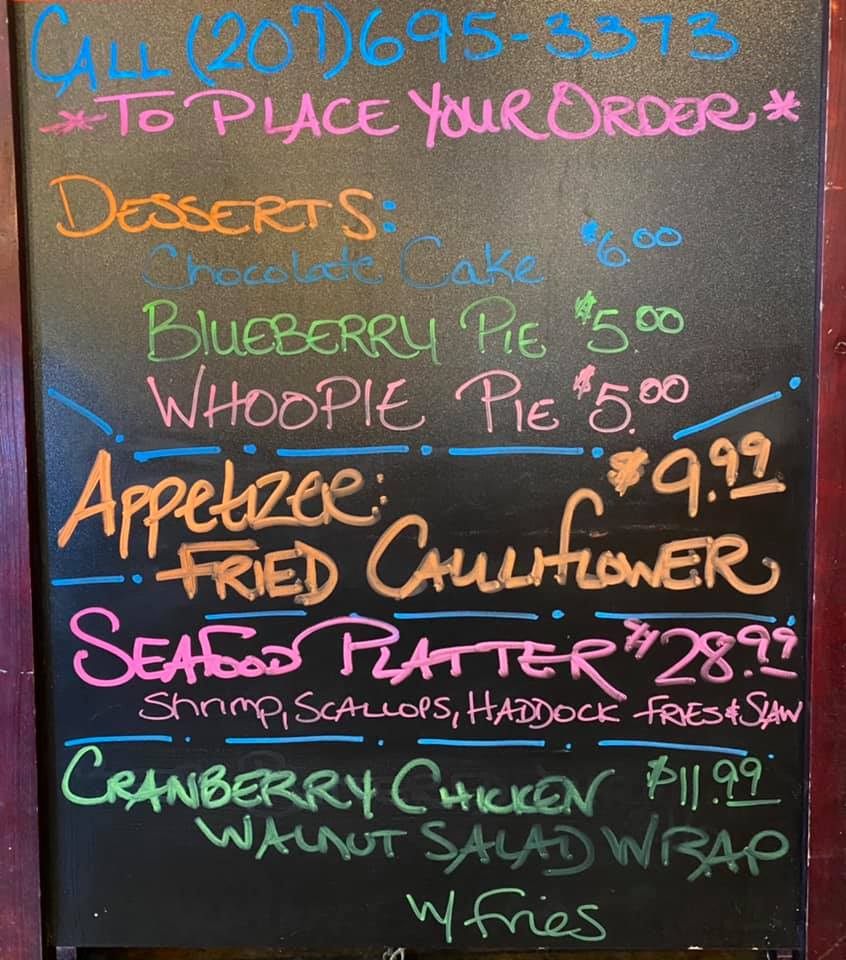 CALL (207) 695-3373
*TO PLACE YOUR ORDER*
DESSERTS:
Chocolate Cake $6.00
BLUEBERRY PIE $5.00
WHOOPIE PIE $5.00
Appetizer: $9.99
FRIED CAULIFLOWER
SEAFOOD PLATTER $28.99
Shrimp, SCALLOPS, HADDOCK FRIES & SLAW
CRANBERRY CHICKEN $11.99
WALNUT SALAD WRAP
w/ fries